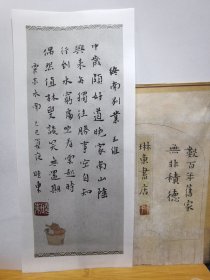 終南别業 王維
中歲頗好道晚家南山陲
興來每獨往勝事空自知
行到水窮處坐看雲起時
偶然值林叟談笑無還期
乙巳夏夜
數百年舊家
無非積德
琳東書店